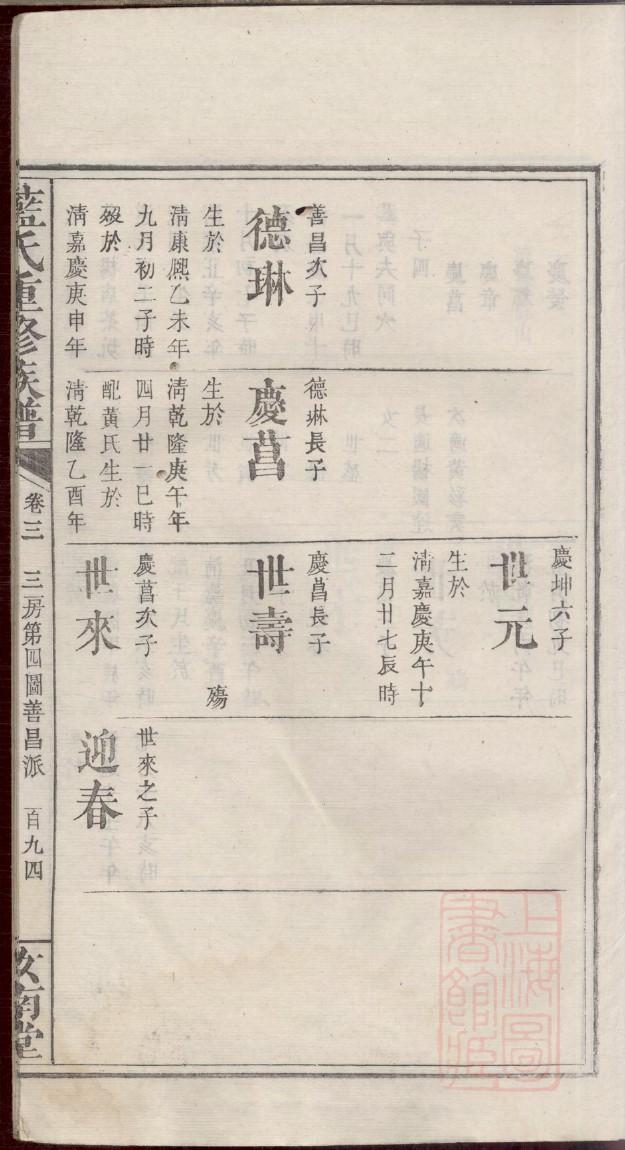 善昌次子
德琳
生於
清康熈乙未年
九月初二子時
歿於
清嘉慶庚申年
德琳長子
慶菖
生於
清乾隆庚午年
四月廿一巳時
配黃氏生於
清乾隆乙酉年
慶坤六子
世元
生於
清嘉慶庚午十
二月廿七辰時
慶菖長子
世壽
殤
慶菖次子
世來
世來之子
迎春
藍氏重修族譜
卷三
三房第四圖善昌派
百九四
汝南堂
上海圖
書館藏